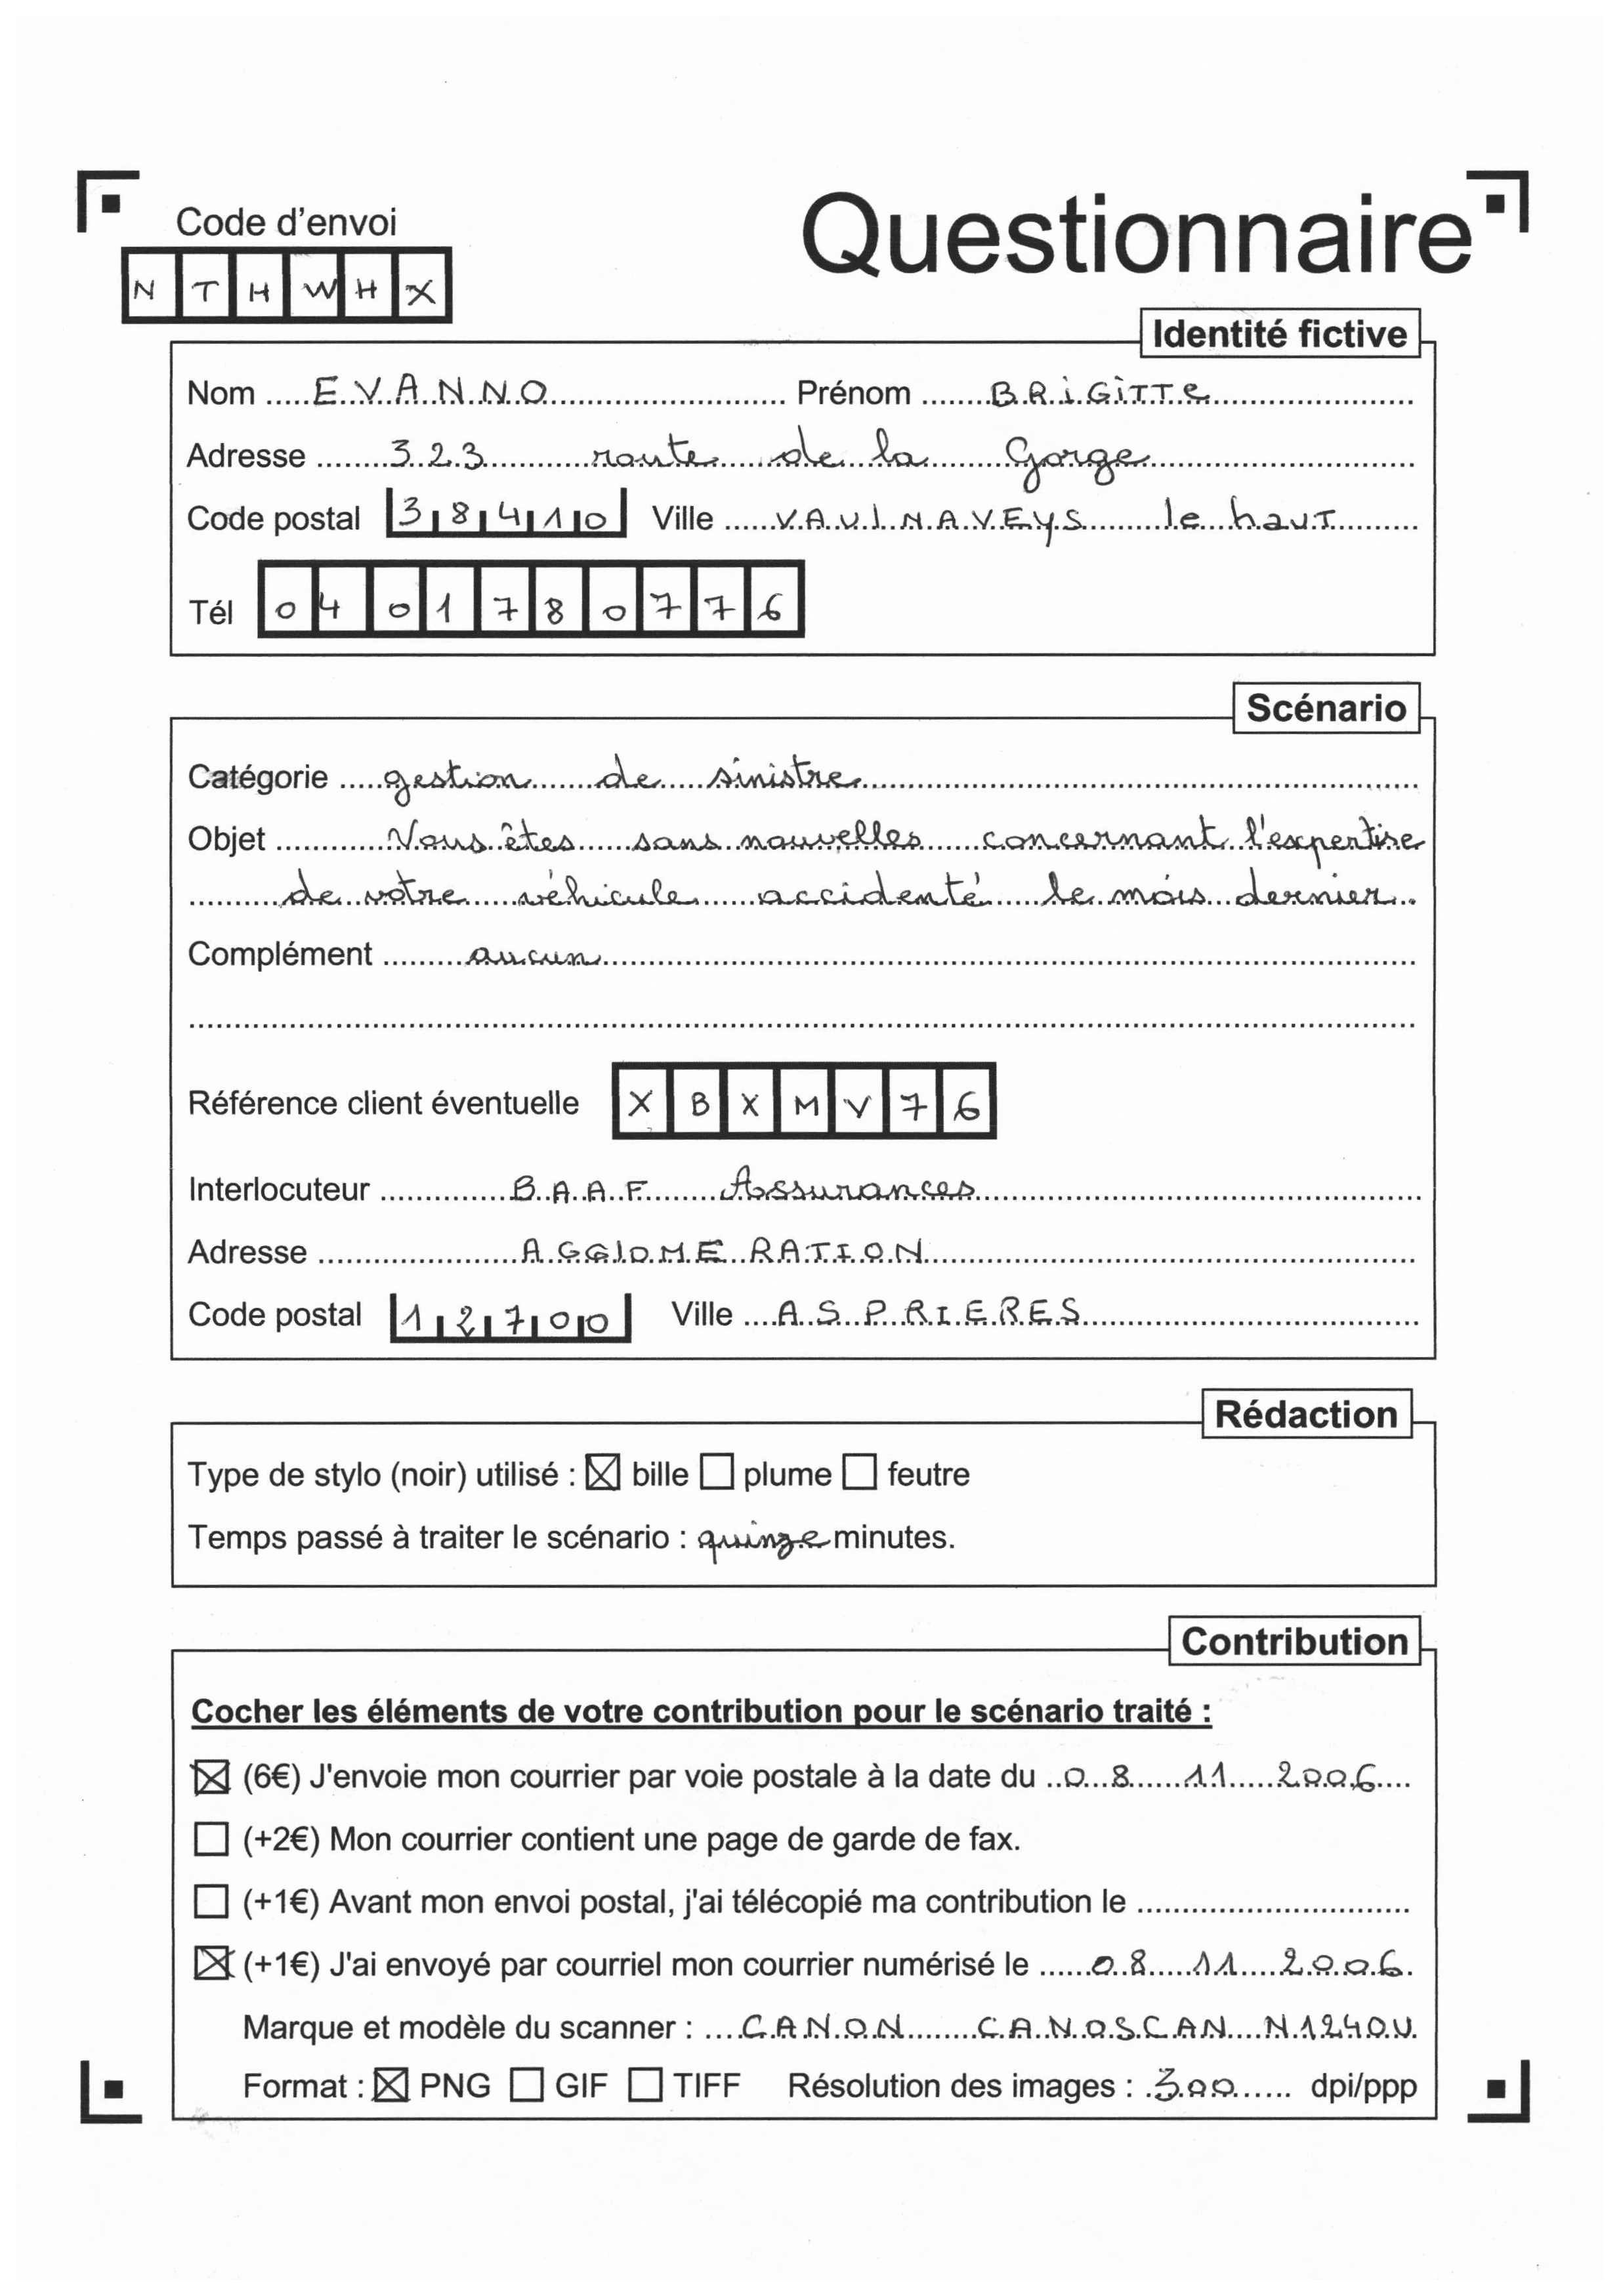 Code d'envoi
Questionnaire
N T H W H X
Identité fictive
Nom EVANNO Prénom BRiGiTTe
Adresse 323 route de la Gorge
Code postal 38410 Ville VAUlNAVEyS le hauT
Tél 0401780776
Scénario
Catégorie gestion de sinistre
Objet Vous êtes sans nouvelles concernant l'expertise
de votre véhicule accidenté le mois dernier.
Complément aucun
Référence client éventuelle X B X M V 7 6
Interlocuteur BAAF Assurances
Adresse AGGlOMERATION
Code postal 12700 Ville ASPRIERES
Rédaction
Type de stylo (noir) utilisé : ☒ bille ☐ plume ☐ feutre
Temps passé à traiter le scénario : quinze minutes.
Contribution
Cocher les éléments de votre contribution pour le scénario traité :
☒ (6€) J'envoie mon courrier par voie postale à la date du 08 11 2006
☐ (+2€) Mon courrier contient une page de garde de fax.
☐ (+1€) Avant mon envoi postal, j'ai télécopié ma contribution le
☒ (+1€) J'ai envoyé par courriel mon courrier numérisé le 08 11 2006.
Marque et modèle du scanner : CANON CANOSCAN N1240U
Format : ☒ PNG ☐ GIF ☐ TIFF Résolution des images : 300 dpi/ppp